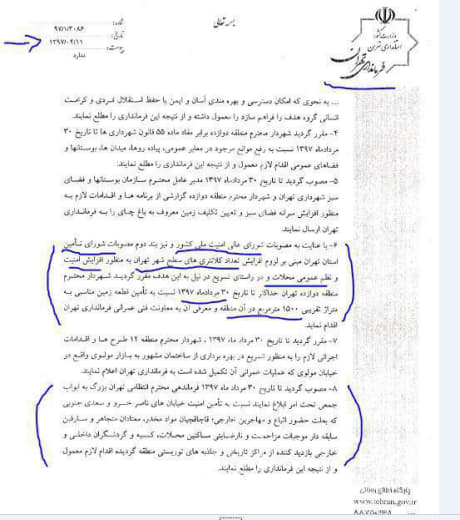 بسمه تعالی
وزارت کشور
استانداری تهران
فرمانداری تهران
شماره: ۹۷/۱/۳۰۸۶
تاریخ: ۱۳۹۷/۰۴/۱۱
پیوست: ندارد
... به نحوی که امکان دسترسی و بهره مندی آسان و ایمن با حفظ استقلال فردی و کرامت
انسانی گروه هدف را فراهم سازد را معمول داشته و از نتیجه این فرمانداری را مطلع نمایند.
۴- مقرر گردید شهردار محترم منطقه دوازده برابر مفاد ماده ۵۵ قانون شهرداری ها تا تاریخ ۳۰
مردادماه ۱۳۹۷ نسبت به رفع موانع موجود در معابر عمومی، پیاده روها، میدان ها، بوستانها و
فضاهای عمومی اقدام لازم معمول و از نتیجه این فرمانداری را مطلع نمایند.
۵- مصوب گردید تا تاریخ ۳۰ مردادماه ۱۳۹۷ مدیر عامل محترم سازمان بوستانها و فضای
سبز شهرداری تهران و شهردار محترم منطقه دوازده گزارشی از برنامه ها و اقدامات لازم به
منظور افزایش سرانه فضای سبز و تعیین تکلیف زمین معروف به باغ چای را به فرمانداری
تهران ارسال نمایند.
۶- با عنایت به مصوبات شورای عالی امنیت ملی کشور و نیز بند دوم مصوبات شورای تأمین
استان تهران مبنی بر لزوم افزایش تعداد کلانتری های سطح شهر تهران به منظور افزایش امنیت
و نظم عمومی محلات و در راستای تسریع در نیل به این هدف مقرر گردید شهردار محترم
منطقه دوازده تهران حداکثر تا تاریخ ۳۰ مردادماه ۱۳۹۷ نسبت به تأمین قطعه زمین مناسبی به
متراژ تقریبی ۱۵۰۰ مترمربع در آن منطقه و معرفی آن به معاونت فنی عمرانی فرمانداری تهران
اقدام نماید.
۷- مقرر گردید تا تاریخ ۳۰ مرداد ماه ۱۳۹۷ ، شهردار محترم منطقه ۱۲ طرح ها و اقدامات
اجرائی لازم را به منظور تسریع در بهره برداری از ساختمان مشهور به بازار مولوی واقع در
خیابان مولوی که عملیات عمرانی آن تکمیل شده است به فرمانداری تهران اعلام نمایند.
۸- مصوب گردید تا تاریخ ۳۰ مرداد ماه ۱۳۹۷ فرماندهی محترم انتظامی تهران بزرگ به ابواب
جمعی تحت امر ابلاغ نمایند نسبت به تأمین امنیت خیابان های ناصر خسرو و سعدی جنوبی
که بعلت حضور اتباع و مهاجرین خارجی؛ قاچاقچیان مواد مخدر، معتادان متجاهر و سارقین
سابقه دار موجبات مزاحمت و نارضایتی ساکنین محلات، کسبه و گردشگران داخلی و
خارجی بازدید کننده از مراکز تاریخی و جاذبه های توریستی منطقه گردیده اقدام لازم معمول
و از نتیجه این فرمانداری را مطلع نمایند.
www.tehran.gov.ir